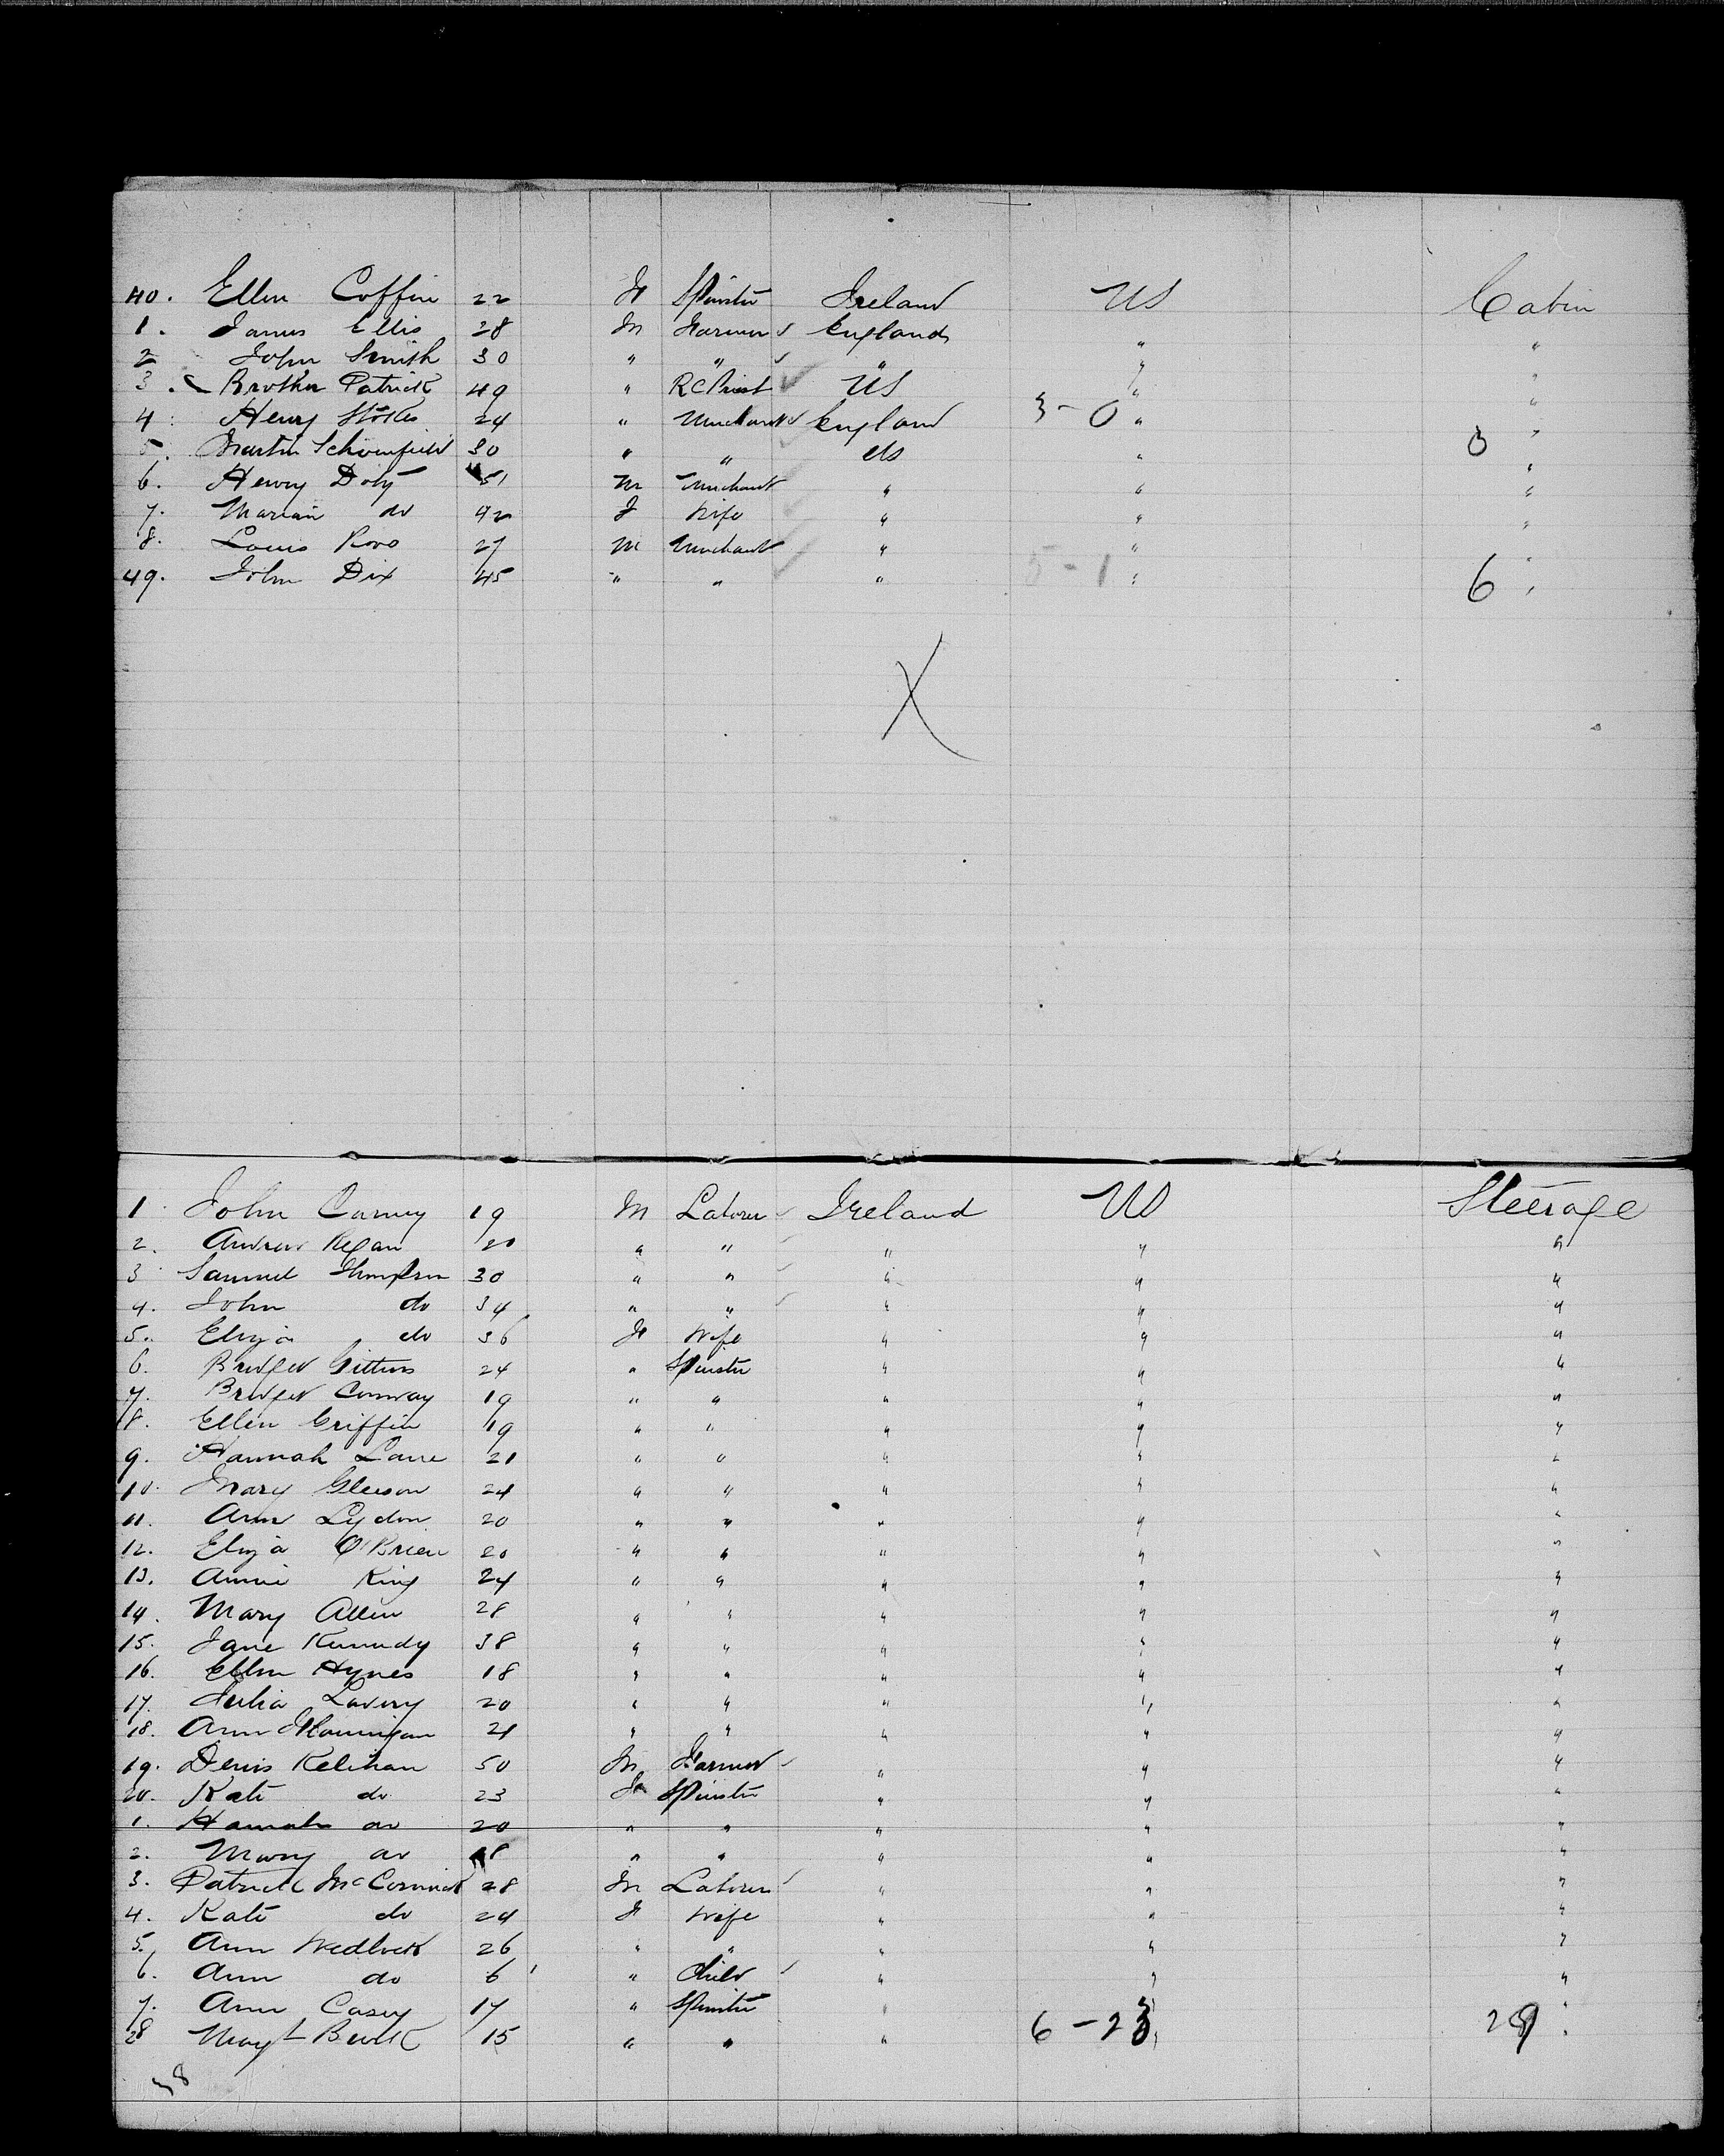 40. Ellen Coffin 22 F Spinster Ireland US Cabin
1. James Ellis 28 M Farmer England " "
2 John Smith 30 " " " " "
3. Brother Patrick 49 " RC Priest US " "
4 Henry Stokes 24 " Merchant England 3-0 " "
5. Martin Schoenfield 30 " " US " 3 "
6. Henry Doty 51 M Merchant " " "
7. Marian do 42 F Wife " " "
8. Louis 27 M Merchant " " "
49. John Dix 45 " " " 5-1 " 6 "
X
1 John Carney 19 M Laborer Ireland US Steerage
2. Andrew Regan 20 " " " " "
3 Samuel Thompson 30 " " " " "
4. John do 34 " " " " "
5. Eliza do 36 F Wife " " "
6. Bridget Gittins 24 " Spinster " " "
7. Bridget Conway 19 " " " " "
8. Ellen Griffin 19 " " " " "
9. Hannah Lane 21 " " " " "
10. Mary Gleeson 24 " " " " "
11. Ann Lydon 20 " " " " "
12. Eliza O'Brien 20 " " " " "
13. Annie King 24 " " " " "
14. Mary Allen 28 " " " " "
15. Jane Kennedy 38 " " " " "
16. Ellen Hynes 18 " " " " "
17. Julia Lavery 20 " " " " "
18. Ann Flannigan 21 " " " " "
19. Denis Kelihan 50 M Farmer " " "
20. Kate do 23 F Spinster " " "
1. Hannah do 20 " " " " "
2. Mary do 18 " " " " "
3. Patrick McCormick 28 M Laborer " " "
4. Kate do 24 F Wife " " "
5. Ann Wedlock 26 " " " " "
6. Ann do 6 " Child " " "
7. Ann Casey 17 " Spinster " " "
28 Magt Burk 15 " " " 6-23 " 29 "
38